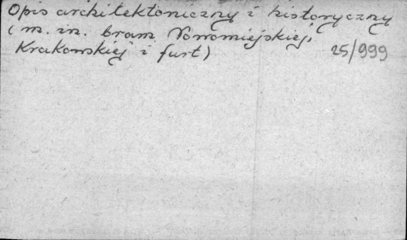 Opis architektoniczny i historyczny
(m. in. bram Nowomiejskiej,
Krakowskiej i furt)
25/999